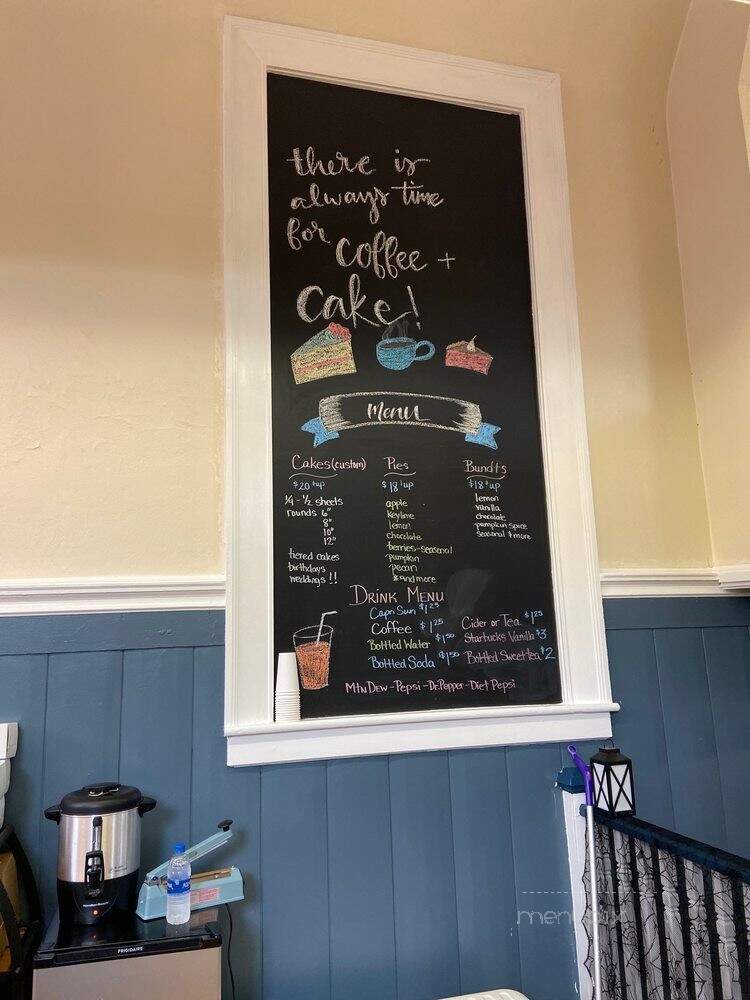 there is
always time
for coffee +
cake!
Menu
Cakes (custom)
$20 + up
1/4 - 1/2 sheets
rounds 6"
8"
10"
12"
tiered cakes
birthdays
weddings!!
Pies
$18 + up
apple
keylime
lemon
chocolate
berries - seasonal
pumpkin
pecan
& and more
Bundts
$18 + up
lemon
vanilla
chocolate
pumpkin spice
seasonal & more
DRINK MENU
Capri Sun $1.25
Coffee $1.25
Bottled Water $1.50
Bottled Soda $1.50
Cider or Tea $1.25
Starbucks Vanilla $3
Bottled Sweet tea $2
Mtn Dew - Pepsi - Dr. Pepper - Diet Pepsi
FRIGIDAIRE